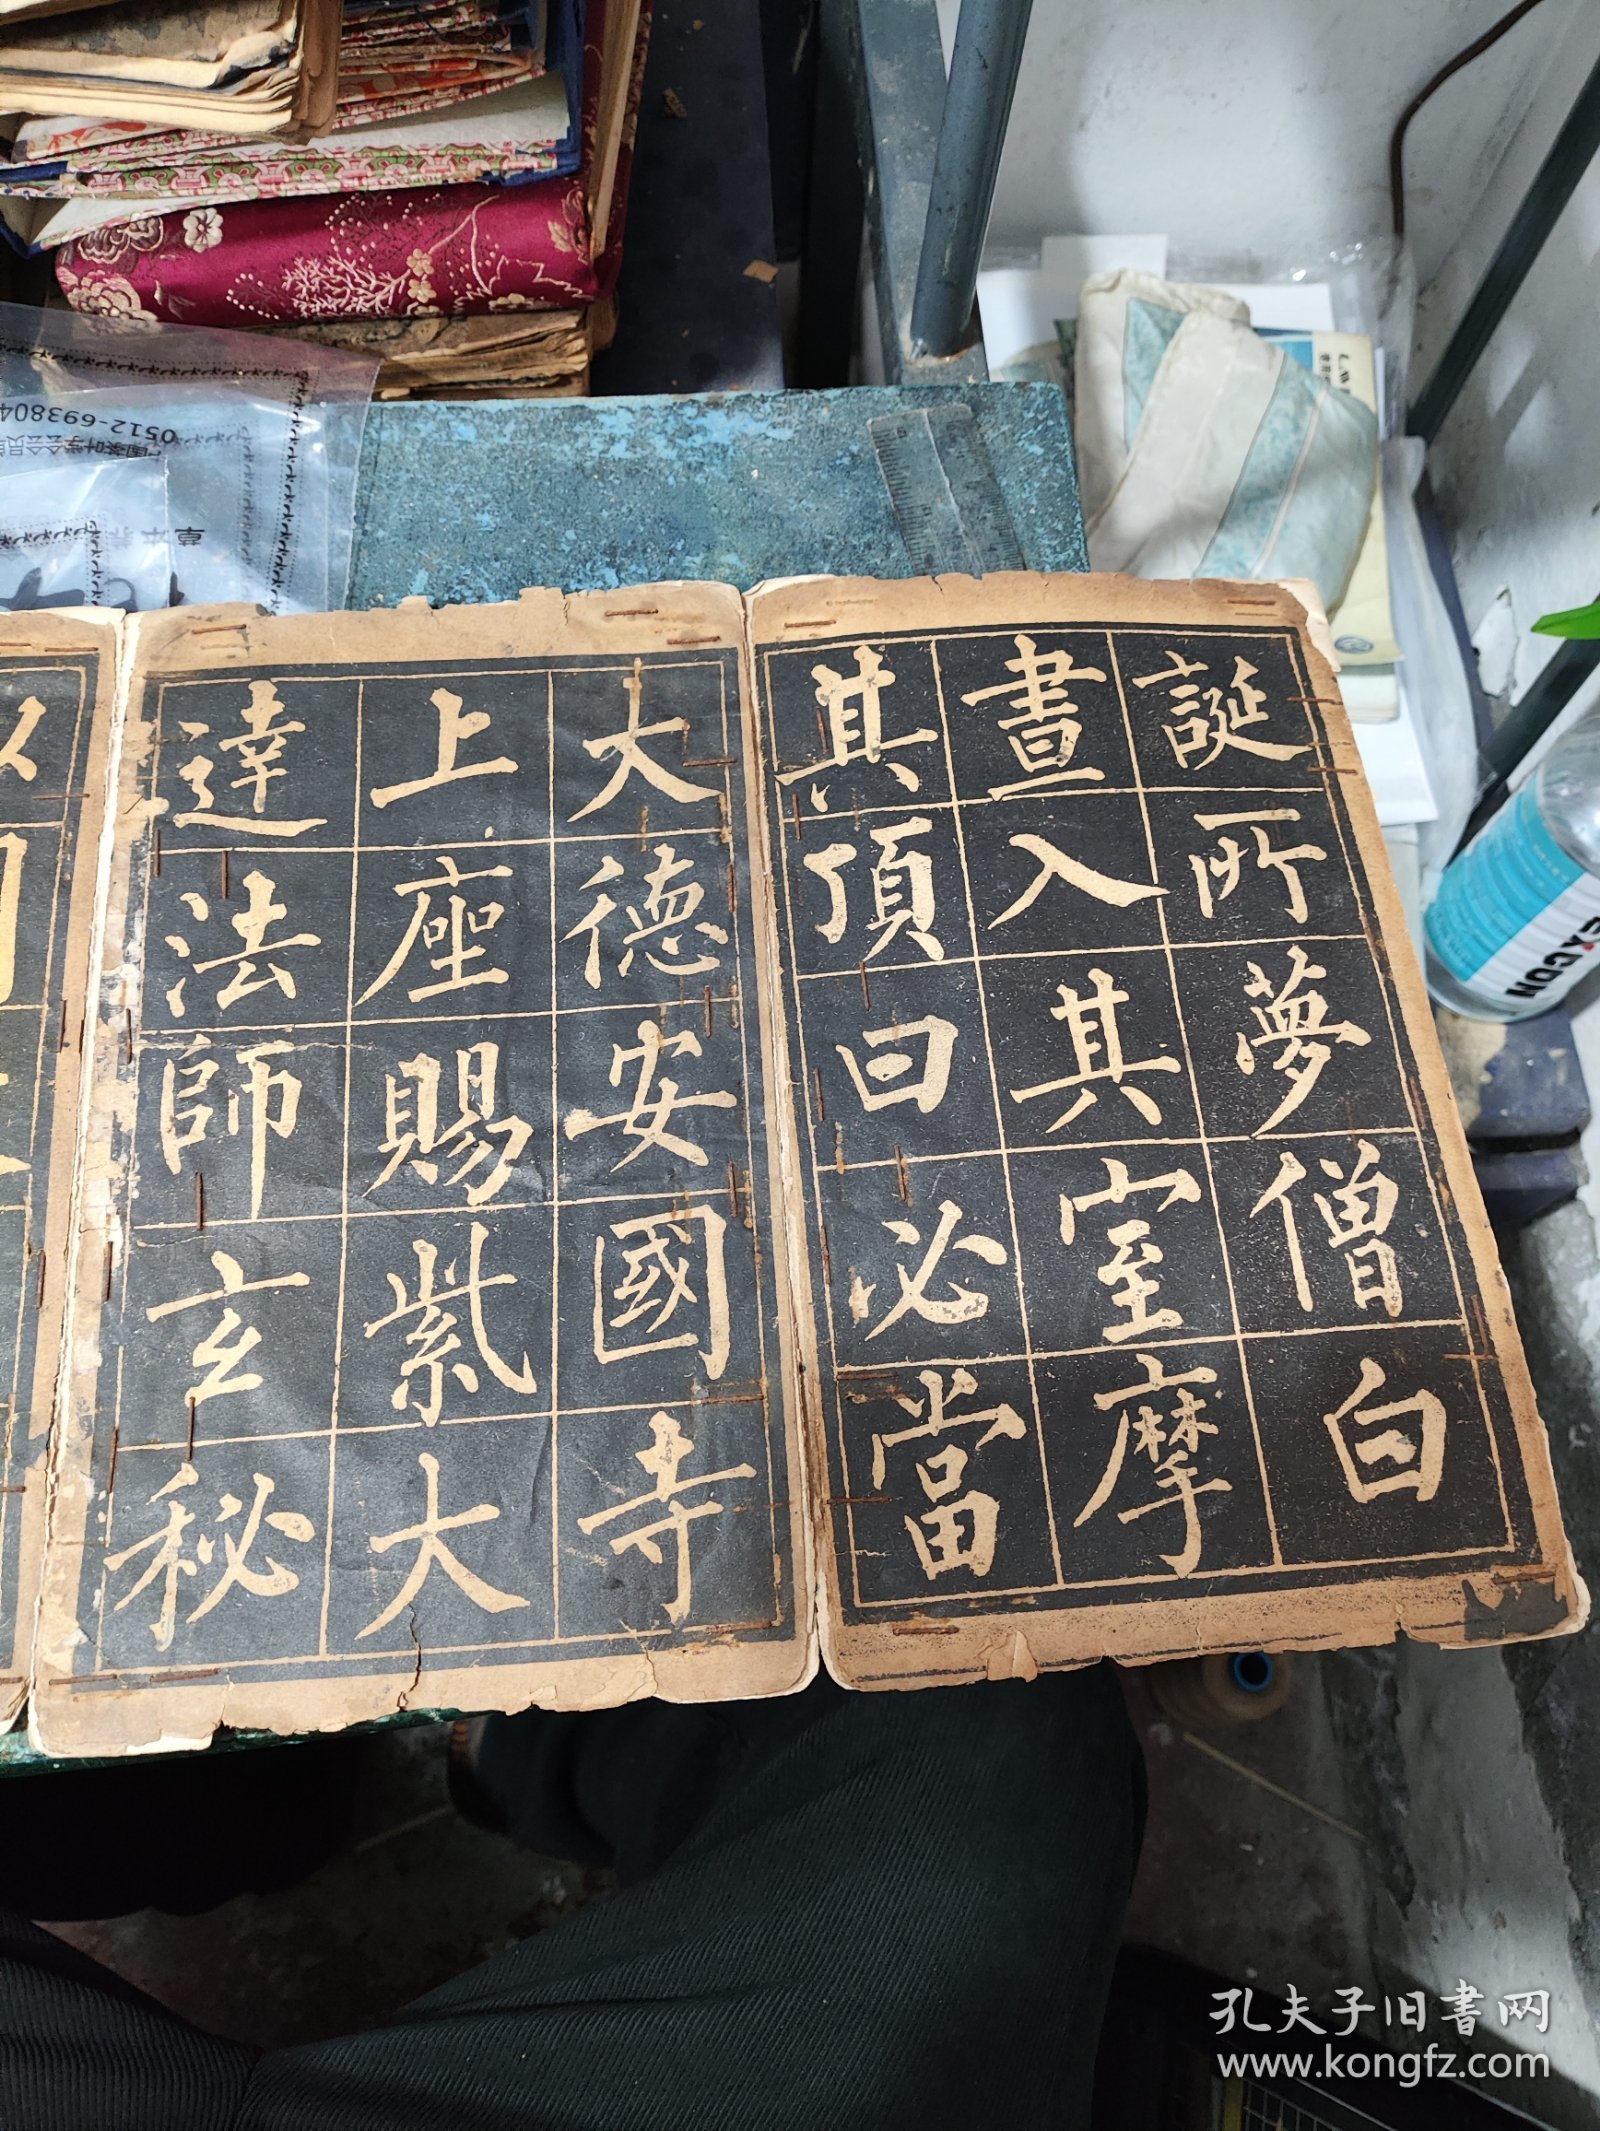 誕所夢僧白
晝入其室摩
其頂曰必當
大德安國寺
上座賜紫大
達法師玄秘
0512-693804
SAXCON
孔夫子旧书网
www.kongfz.com